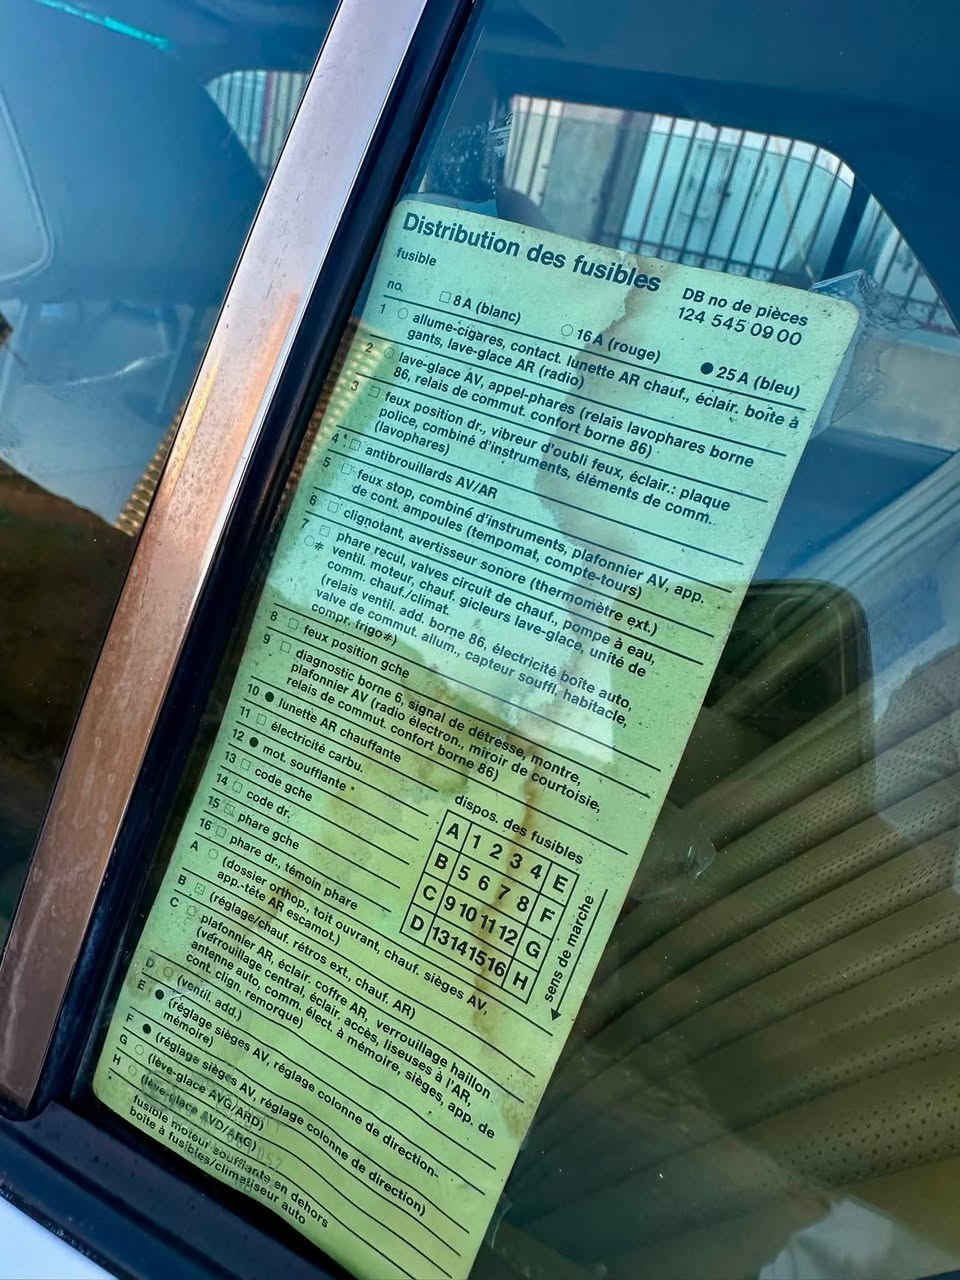 Distribution des fusibles
fusible
DB no de pièces
124 545 09 00
no. □ 8 A (blanc) ○ 16 A (rouge) ● 25 A (bleu)
1 ○ allume-cigares, contact. lunette AR chauf., éclair. boîte à
gants, lave-glace AR (radio)
2 ○ lave-glace AV, appel-phares (relais lavophares borne
86, relais de commut. confort borne 86)
3 □ feux position dr., vibreur d'oubli feux, éclair.: plaque
police, combiné d'instruments, éléments de comm.
(lavophares)
4 □ antibrouillards AV/AR
5 □ feux stop, combiné d'instruments, plafonnier AV, app.
de cont. ampoules (tempomat, compte-tours)
6 □ clignotant, avertisseur sonore (thermomètre ext.)
7 □ phare recul, valves circuit de chauf., pompe à eau,
○# ventil. moteur, chauf. gicleurs lave-glace, unité de
comm. chauf./climat.
(relais ventil. add. borne 86, électricité boîte auto,
valve de commut. allum., capteur souffl. habitacle,
compr. frigo#)
8 □ feux position gche
9 □ diagnostic borne 6, signal de détresse, montre,
plafonnier AV (radio électron., miroir de courtoisie,
relais de commut. confort borne 86)
10 ● lunette AR chauffante
11 □ électricité carbu.
12 ● mot. soufflante *
13 □ code gche
14 □ code dr.
15 □ phare gche
16 □ phare dr., témoin phare
dispos. des fusibles
A 1 2 3 4 E
B 5 6 7 8 F
C 9 10 11 12 G
D 13 14 15 16 H
sens de marche
A ○ (dossier orthop., toit ouvrant, chauf. sièges AV,
app.-tête AR escamot.)
B □ (réglage/chauf. rétros ext., chauf. AR)
C ○ plafonnier AR, éclair. coffre AR, verrouillage haillon
(verrouillage central, éclair. accès, liseuses à l'AR,
antenne auto, comm. élect. à mémoire, sièges, app. de
cont. clign. remorque)
D ○ (ventil. add.)
E ● (réglage sièges AV, réglage colonne de direction-
mémoire)
F ● (réglage sièges AV, réglage colonne de direction)
G ○ (lève-glace AVG/ARD)
H ○ (lève-glace AVD/ARG)
fusible moteur soufflante en dehors
boîte à fusibles/climatiseur auto